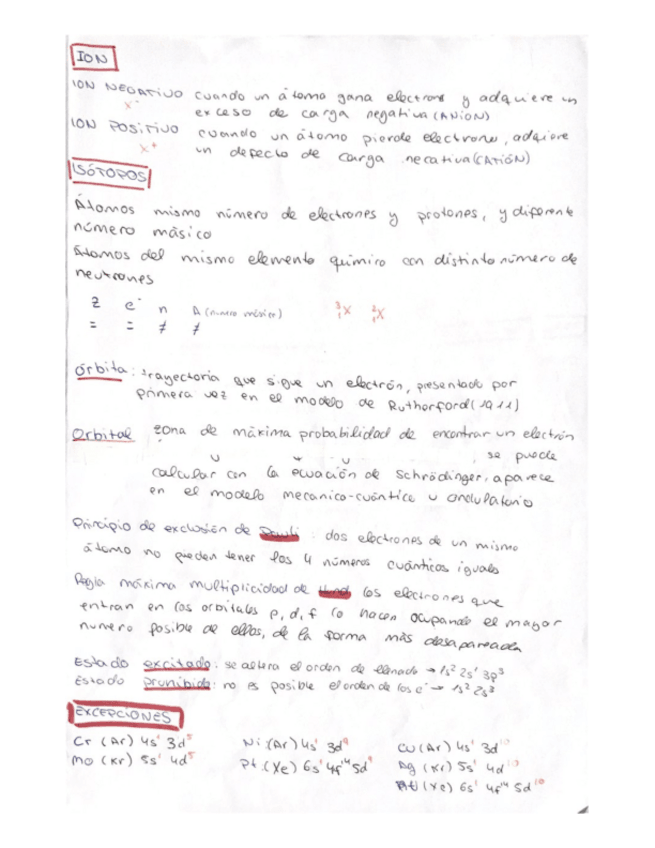 ION
ION NEGATIVO cuando un átomo gana electrons y adquiere un
X⁻ exceso de carga negativa (ANIÓN)
ION POSITIVO cuando un átomo pierde electrons, adquiere
X⁺ un defecto de carga necativa (CATIÓN)
ISÓTOPOS
Átomos mismo número de electrones y protones, y diferente
número másico
Átomos del mismo elemento quimico con distinto número de
neutrones
Z e⁻ n A (numero másico) ³₁X ²₁X
= = ≠ ≠
órbita: trayectoria que sigue un electrón, presentado por
primera vez en el modelo de Rutherford (1911)
Orbital zona de máxima probabilidad de encontrar un electrón
se puede
calcular con la ecuación de Schrödinger, aparece
en el modelo mecanico-cuántico u ondulatorio
Principio de exclusión de Pauli: dos electrones de un mismo
átomo no pueden tener los 4 números cuánticos iguales
Regla máxima multiplicidad de Hund los electrones que
entran en los orbitales p, d, f lo hacen ocupando el mayor
numero posible de ellos, de la forma más desapareada
Estado excitado: se altera el orden de llenado → 1s² 2s¹ 3p³
Estado prohibido: no es posible el orden de los e⁻ → 1s² 2s³
EXCEPCIONES
Cr (Ar) 4s¹ 3d⁵ Ni (Ar) 4s¹ 3d⁹ Cu (Ar) 4s¹ 3d¹⁰
Mo (Kr) 5s¹ 4d⁵ Pt (Xe) 6s¹ 4f¹⁴ 5d⁹ Ag (Kr) 5s¹ 4d¹⁰
(Xe) 6s¹ 4f¹⁴ 5d¹⁰